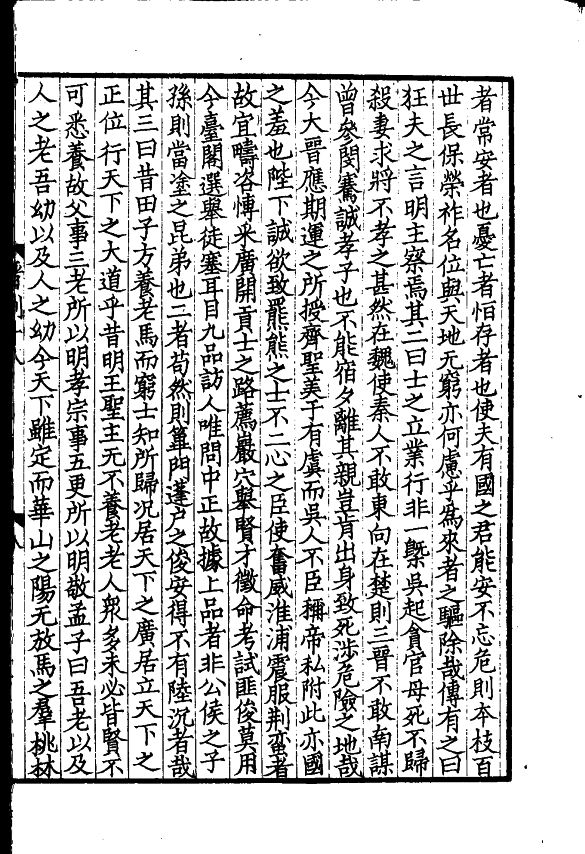 者常安者也憂亡者怕存者也使夫有國之君能安不忘危則本枝百
世長保榮祚名位與天地无窮亦何慮乎爲來者之驅除哉傳有之曰
狂夫之言明主察焉其二曰士之立業行非一槩吳起貪官母死不歸
殺妻求將不孝之甚然在魏使秦人不敢東向在楚則三晉不敢南謀
曾參閔騫誠孝子也不能宿夕離其親豈肯出身致死涉危險之地哉
今大晉應期運之所授齊聖美于有虞而吳人不臣稱帝私附此亦國
之羞也陛下誠欲致羆熊之士不二心之臣使奮威淮浦震服荆蠻者
故宜疇咨愽采廣開貢士之路薦巖穴舉賢才徵命考試匪俊莫用
今臺閣選舉徒塞耳目九品訪人唯問中正故據上品者非公侯之子
孫則當塗之昆弟也二者苟然則篳門蓬户之俊安得不有陸沉者哉
其三曰昔田子方養老馬而窮士知所歸况居天下之廣居立天下之
正位行天下之大道乎昔明王聖主无不養老老人衆多未必皆賢不
可悉養故父事三老所以明孝宗事五更所以明敬孟子曰吾老以及
人之老吾幼以及人之幼今天下雖定而華山之陽无放馬之羣桃林